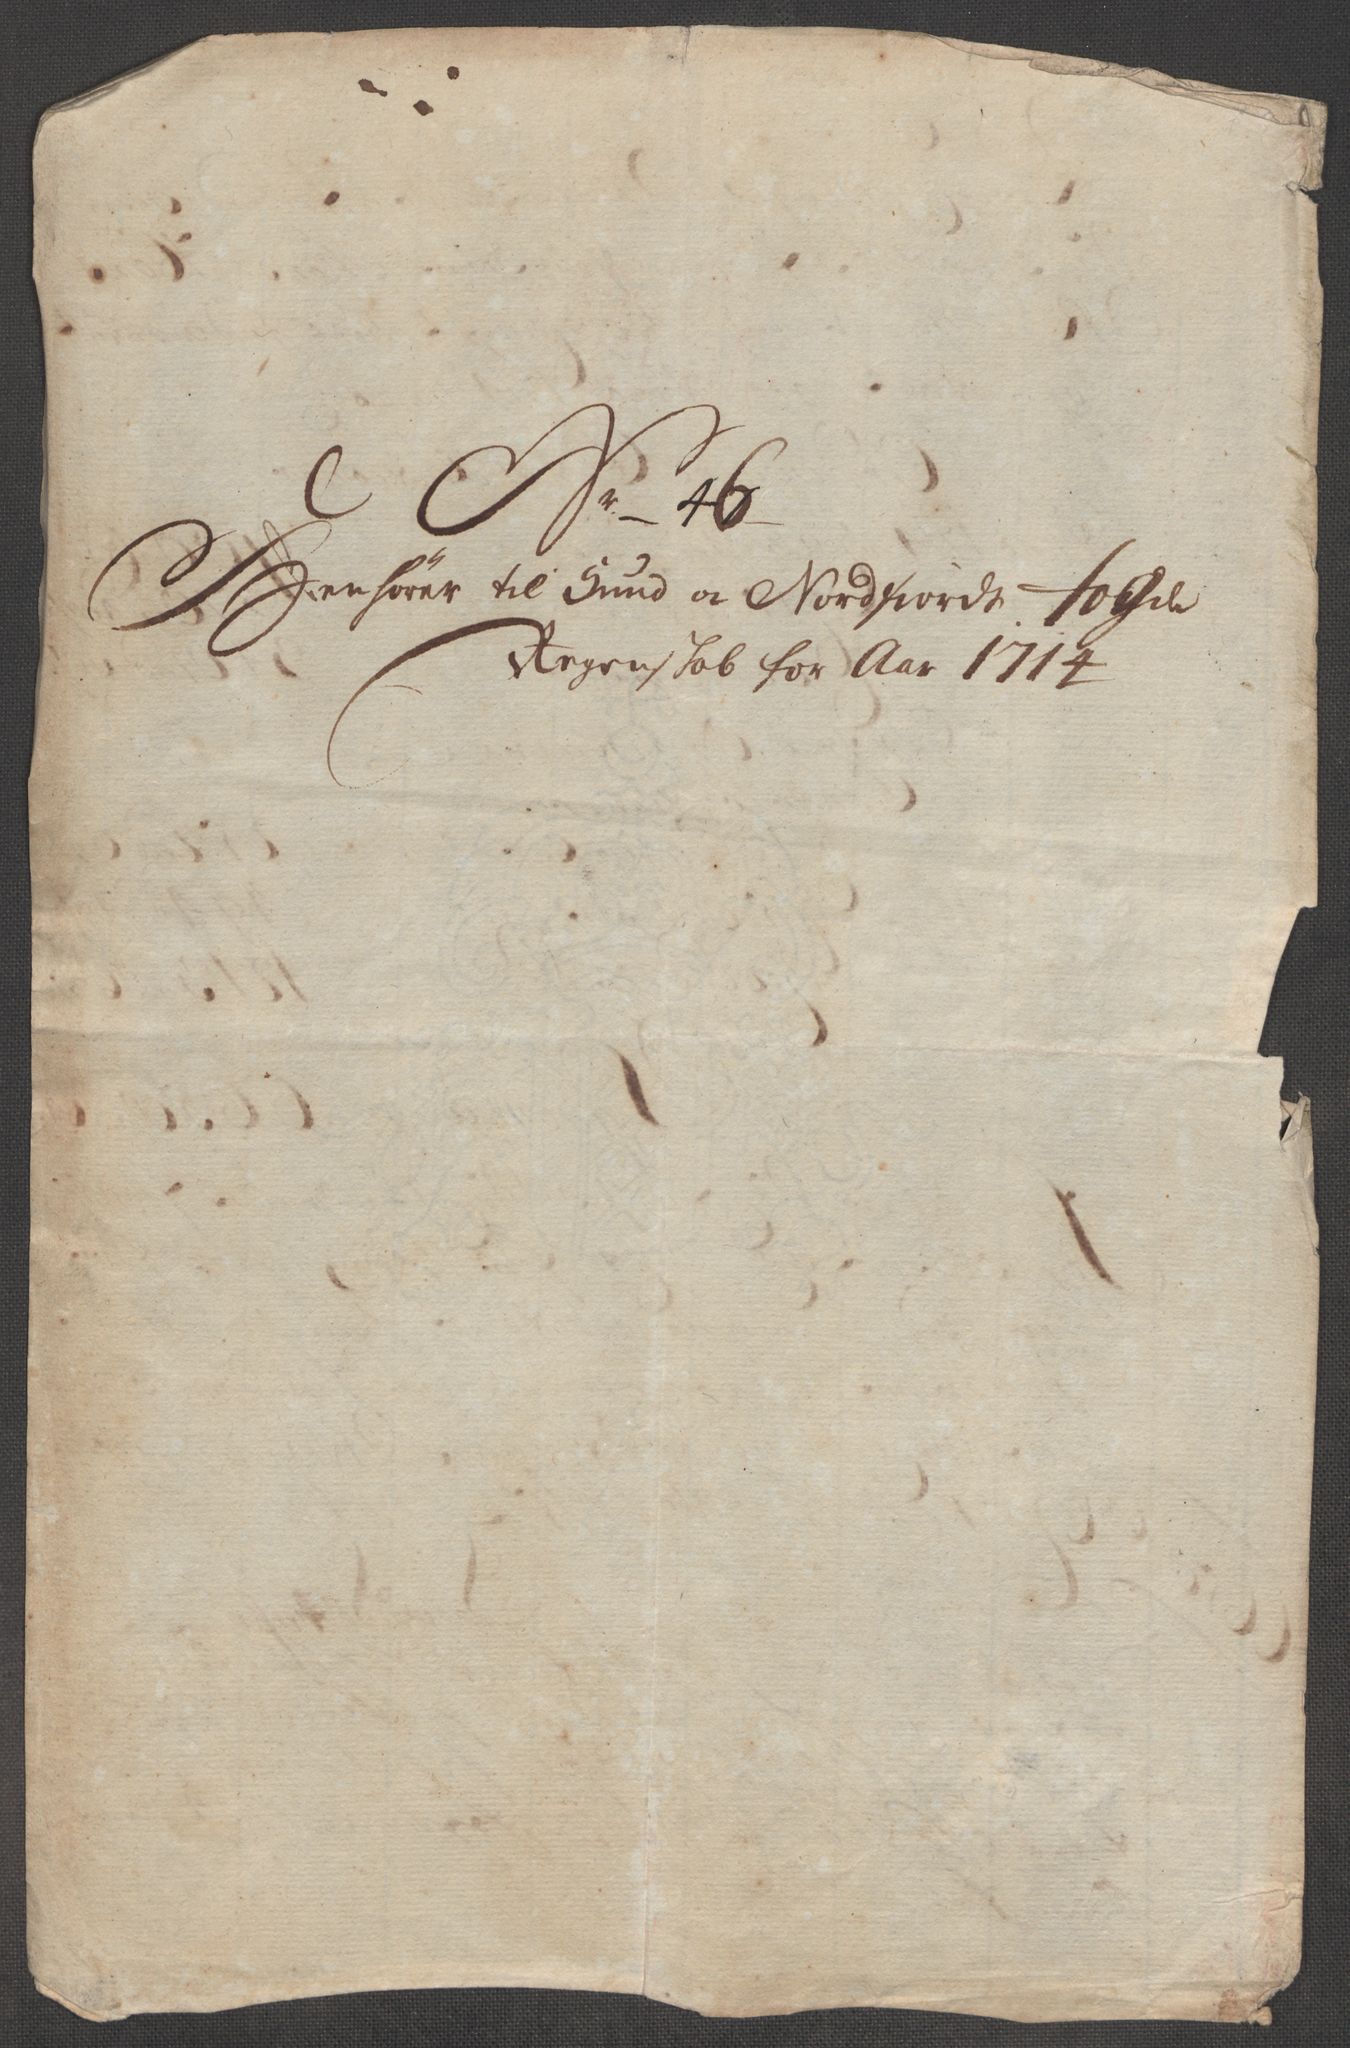 Nr. 46
Henhører til Sund o Nordfiordt fogde
Regenskab for Aar 1714